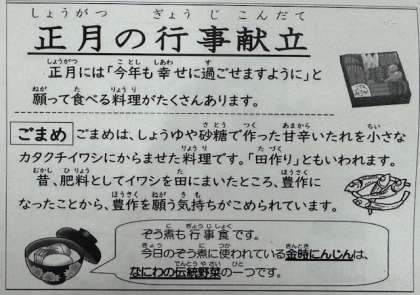 しょうがつ ぎょうじこんだて
正月の行事献立
しょうがつ ことし しあわ す
正月には「今年も幸せに過ごせますように」と
ねが た りょうり
願って食べる料理がたくさんあります。
さとう つく あまから ちい
ごまめ ごまめは、しょうゆや砂糖で作った甘辛いたれを小さな
りょうり たづく
カタクチイワシにからませた料理です。「田作り」ともいわれます。
むかし ひりょう た ほうさく
昔、肥料としてイワシを田にまいたところ、豊作に
ほうさく ねが きも
なったことから、豊作を願う気持ちがこめられています。
に ぎょうじしょく
ぞう煮も行事食です。
きょう に つか きんとき
今日のぞう煮に使われている金時にんじんは、
でんとうやさい ひと
なにわの伝統野菜の一つです。